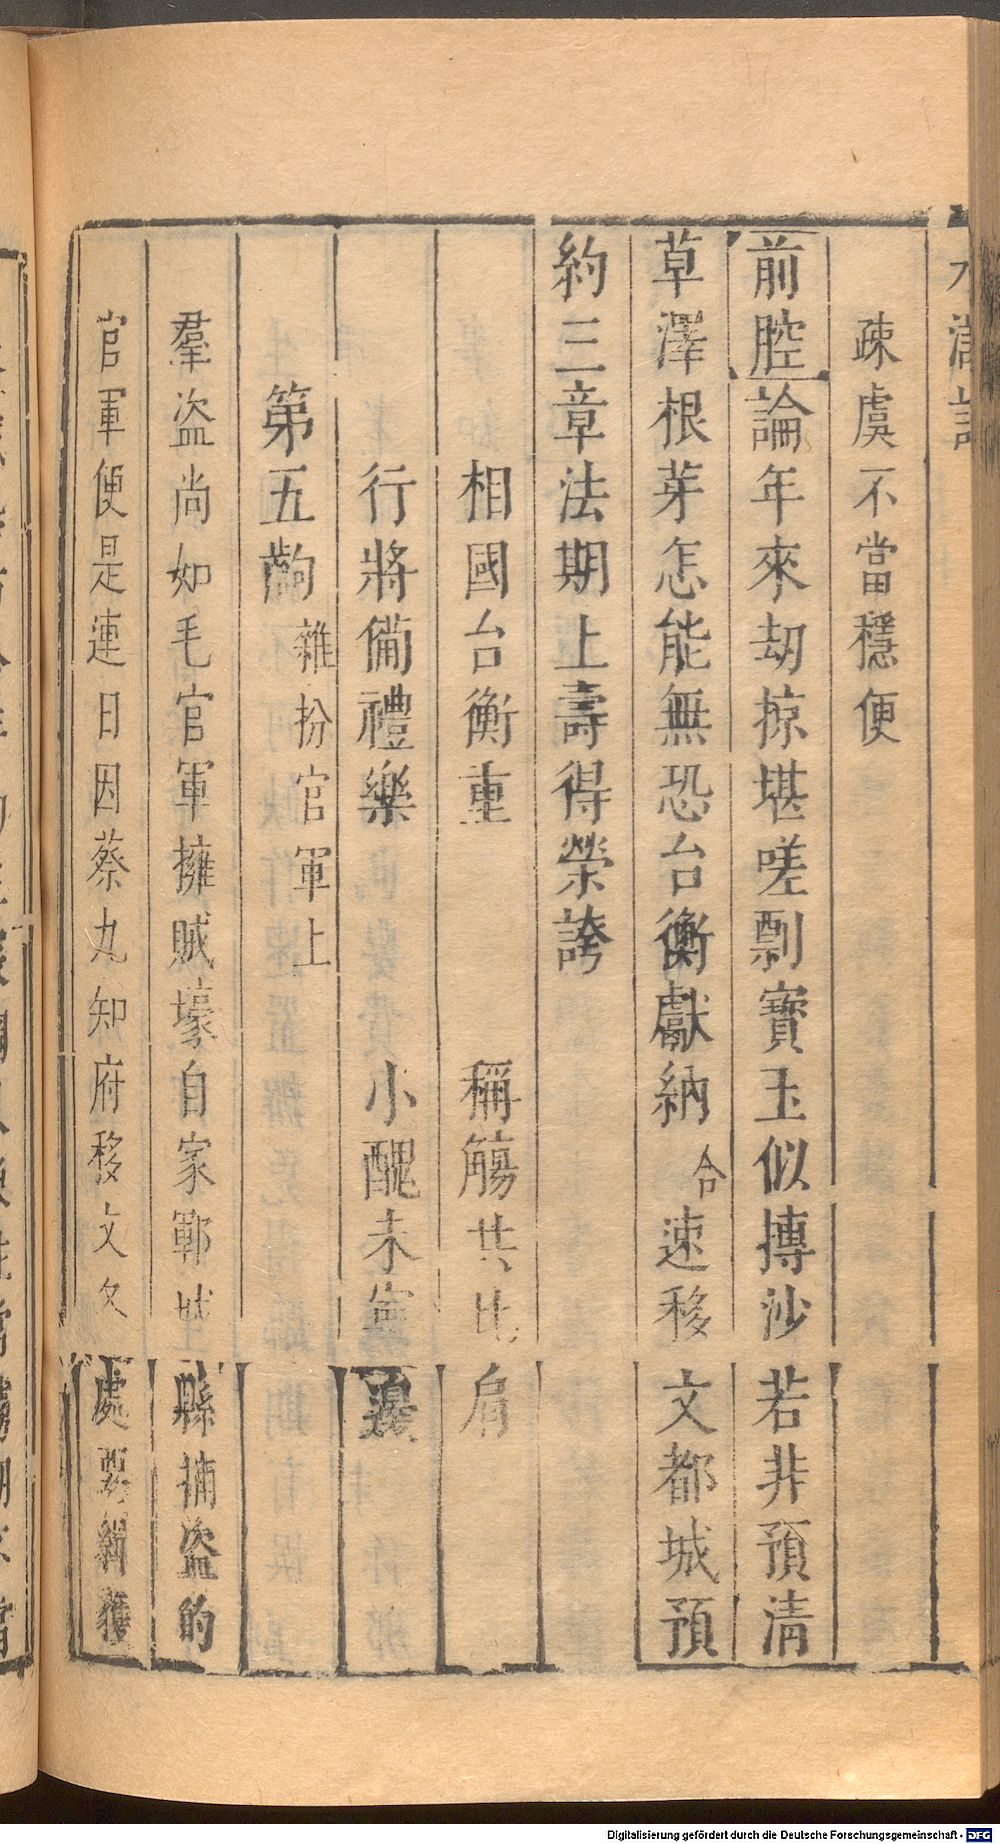 水滸記
疎虞不當穩便
前腔論年來刼掠堪嗟剽寶玉似摶沙若非預清
草澤根芽怎能無恐台衡獻納合速移文都城預
約三章法期上壽得榮誇
相國台衡重 稱觴共比肩
行將備禮樂 小醜未寧邊
第五齣雜扮官軍上
羣盗尚如毛官軍擁賊壕自家鄆城縣捕盗的
官軍便是連日因蔡九知府移文各處要緝獲
Digitalisierung gefördert durch die Deutsche Forschungsgemeinschaft - DFG